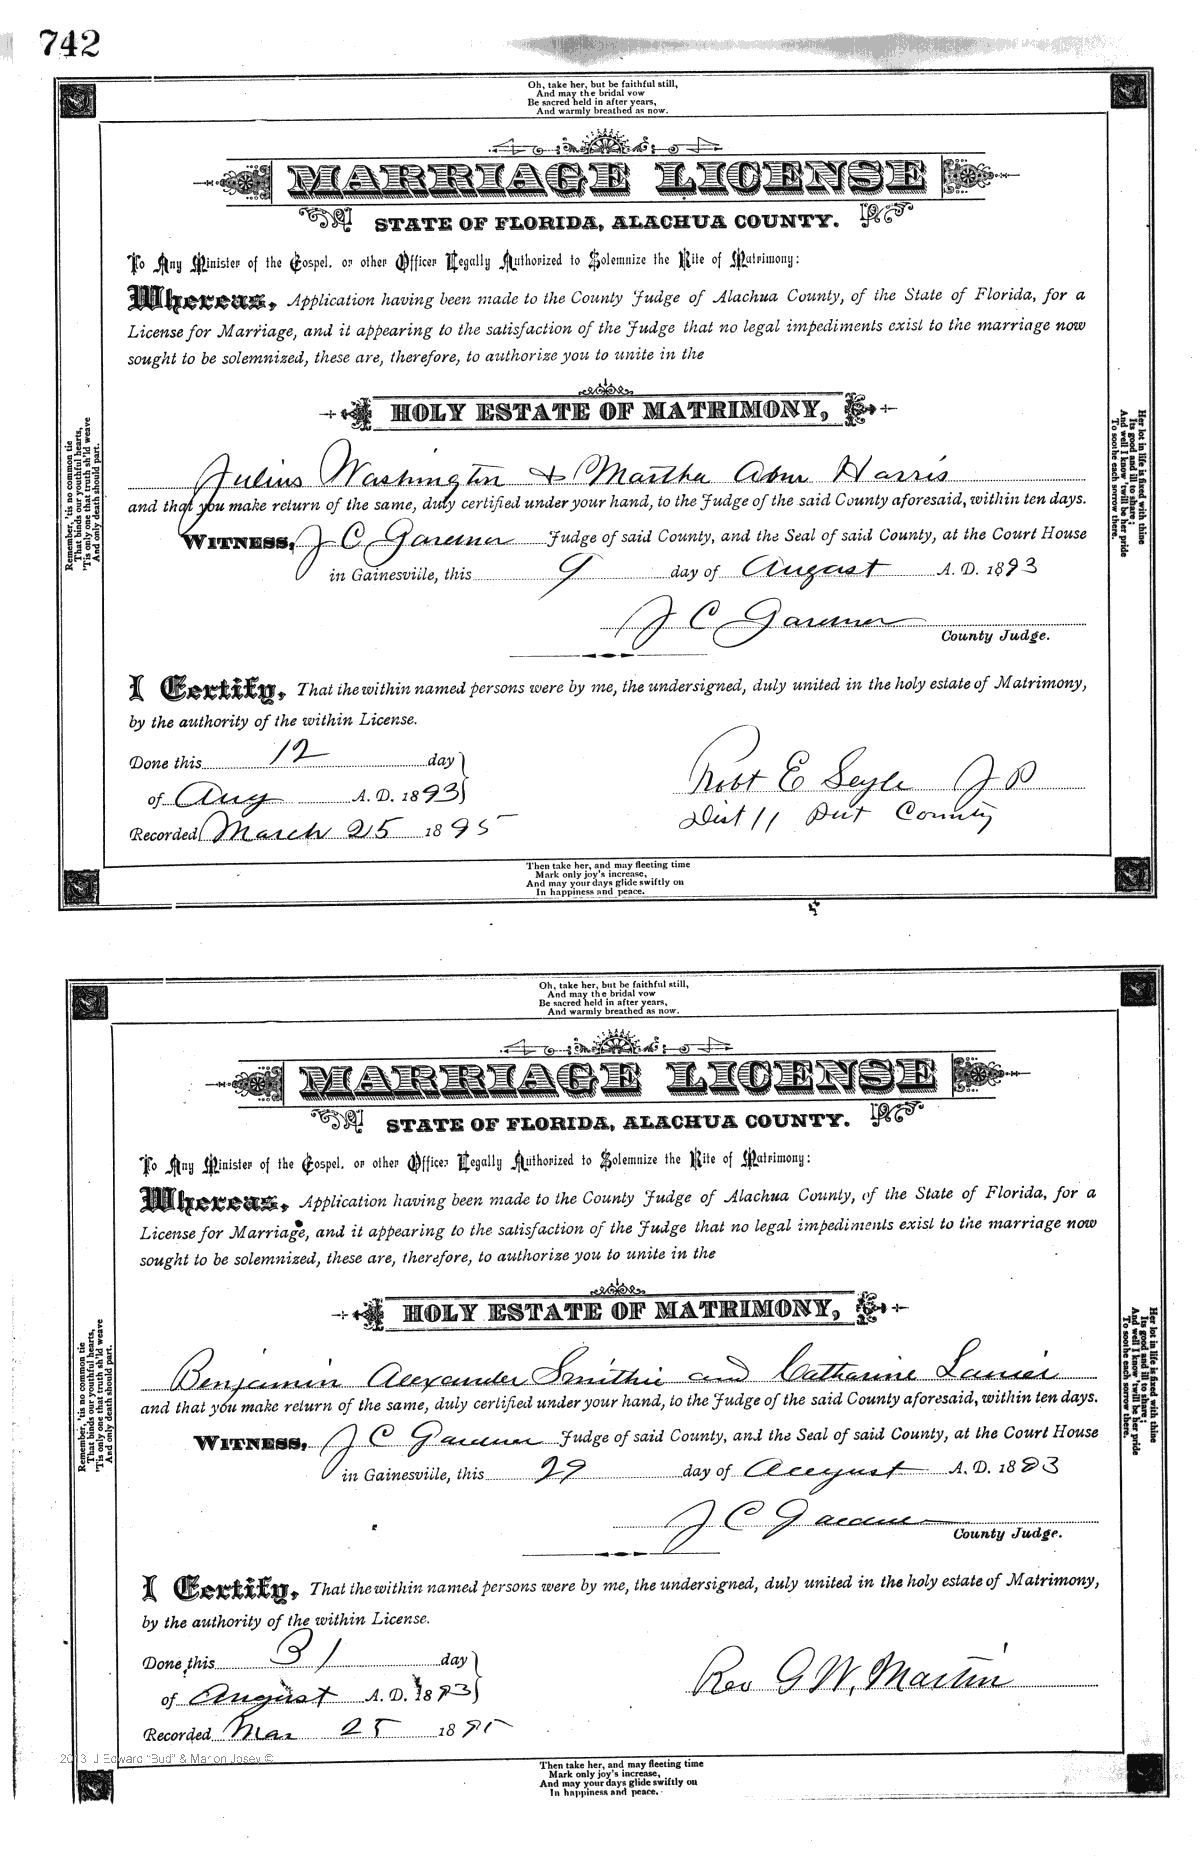 742
Oh, take her, but be faithful still,
And may the bridal vow
Be sacred held in after years,
And warmly breathed as now.
MARRIAGE LICENSE
STATE OF FLORIDA, ALACHUA COUNTY.
To Any Minister of the Gospel, or other Officer Legally Authorized to Solemnize the Rite of Matrimony:
Whereas, Application having been made to the County Judge of Alachua County, of the State of Florida, for a
License for Marriage, and it appearing to the satisfaction of the Judge that no legal impediments exist to the marriage now
sought to be solemnized, these are, therefore, to authorize you to unite in the
HOLY ESTATE OF MATRIMONY,
Julius Washington & Martha Ann Harris
and that you make return of the same, duly certified under your hand, to the Judge of the said County aforesaid, within ten days.
WITNESS, J C Gardner Judge of said County, and the Seal of said County, at the Court House
in Gainesville, this 9 day of August A. D. 1893
J C Gardner
County Judge.
I Certify, That the within named persons were by me, the undersigned, duly united in the holy estate of Matrimony,
by the authority of the within License.
Done this 12 day
of Aug A. D. 1893
Recorded March 25 1895
Robt E Seyle J P
Dist 11 Put County
Remember, 'tis no common tie
That binds our youthful hearts,
'Tis only one that truth sh'ld weave
And only death should part.
Her lot in life is fixed with thine
Its good and ill to share;
And well I know 'twill be her pride
To soothe each sorrow there.
Then take her, and may fleeting time
Mark only joy's increase,
And may your days glide swiftly on
In happiness and peace.
Oh, take her, but be faithful still,
And may the bridal vow
Be sacred held in after years,
And warmly breathed as now.
MARRIAGE LICENSE
STATE OF FLORIDA, ALACHUA COUNTY.
To Any Minister of the Gospel, or other Officer Legally Authorized to Solemnize the Rite of Matrimony:
Whereas, Application having been made to the County Judge of Alachua County, of the State of Florida, for a
License for Marriage, and it appearing to the satisfaction of the Judge that no legal impediments exist to the marriage now
sought to be solemnized, these are, therefore, to authorize you to unite in the
HOLY ESTATE OF MATRIMONY,
Benjamin Alexander Smithie and Catharine Lanier
and that you make return of the same, duly certified under your hand, to the Judge of the said County aforesaid, within ten days.
WITNESS, J C Gardner Judge of said County, and the Seal of said County, at the Court House
in Gainesville, this 29 day of August A. D. 1893
J C Gardner
County Judge.
I Certify, That the within named persons were by me, the undersigned, duly united in the holy estate of Matrimony,
by the authority of the within License.
Done this 31 day
of August A. D. 1893
Recorded Mar 25 1895
Rev G W. Martin
Remember, 'tis no common tie
That binds our youthful hearts,
'Tis only one that truth sh'ld weave
And only death should part.
Her lot in life is fixed with thine
Its good and ill to share;
And well I know 'twill be her pride
To soothe each sorrow there.
2013 J Edward "Bud" & Marion Josey ©
Then take her, and may fleeting time
Mark only joy's increase,
And may your days glide swiftly on
In happiness and peace.